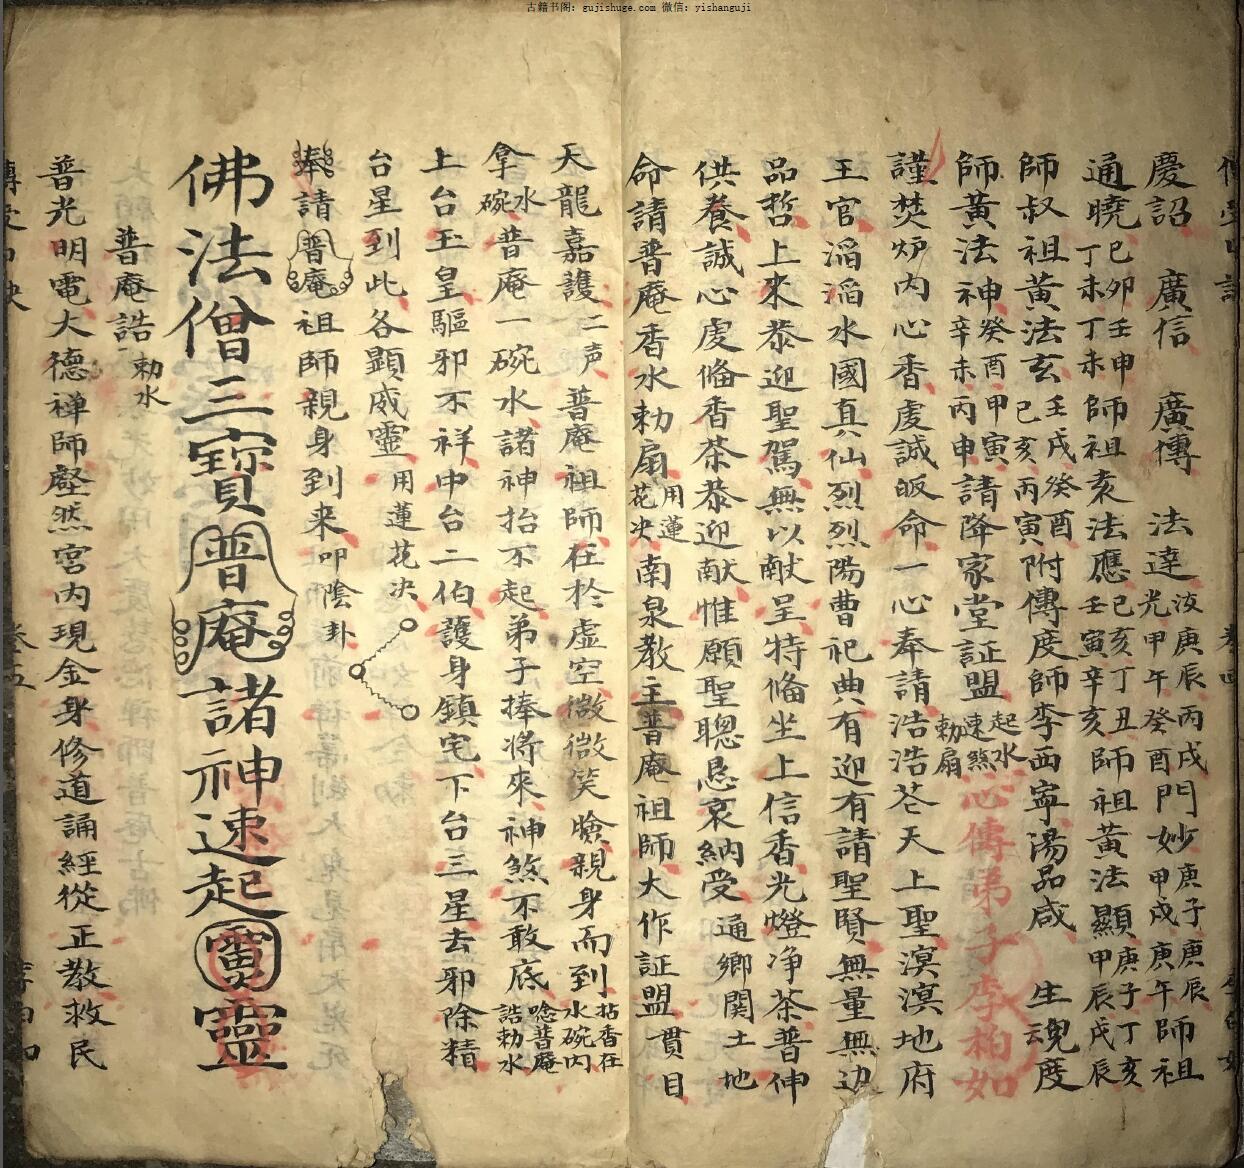 古籍书阁: gujishuge.com 微信: yishanguji
慶詔 廣信 廣傳 法達 庚辰丙戌光甲午癸酉門妙庚子庚辰甲戌庚午師祖
通曉己卯壬申丁未丁未師祖袁法應己亥丁丑壬寅辛亥師祖黃法顯庚子丁亥甲辰戊辰
師叔祖黃法玄壬戌癸酉己亥丙寅附傳度師李西寧湯品咸 生魂度
師黃法神癸酉甲寅辛未丙申請降家堂証盟起水速煞勅扇
心傳弟子李柏如
謹焚炉内心香虔誠皈命一心奉請浩浩苍天上聖溟溟地府
王官滔滔水國真仙烈烈陽曹祀典有迎有請聖賢無量無边
品哲上來恭迎聖駕無以献呈特俻坐上信香光燈净茶普伸
供養誠心虔俻香茶恭迎献惟願聖聰恳哀納受通鄉関土地
命請普庵香水勅扇用蓮花决南泉教主普庵祖師大作証盟貫目
天龍嘉護二声普庵祖師在於虚空微微笑臉親身而到拈香在水碗内
拿水碗普庵一碗水諸神抬不起弟子捧將來神煞不敢底唸普庵誥勅水
上台玉皇驅邪不祥中台二伯護身鎮宅下台三星去邪除精
台星到此各顯威靈用蓮花决
奉請普庵祖師親身到來叩陰卦
佛法僧三寳普庵諸神速起靈
普庵誥勅水
普光明電大德禅師壂然宮内現金身修道誦經從正教救民